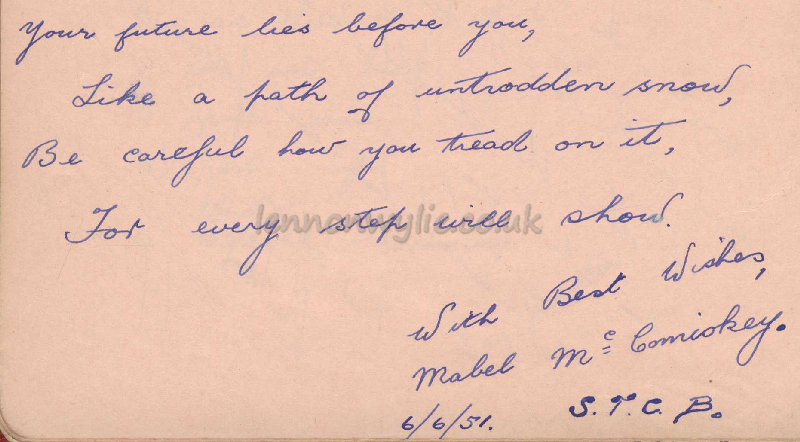 Your future lies before you,
Like a path of untrodden snow,
Be careful how you tread on it,
For every step will show.
lennonwylie.co.uk
With Best Wishes,
Mabel Mc Comiskey.
6/6/51. S.T.C.B.